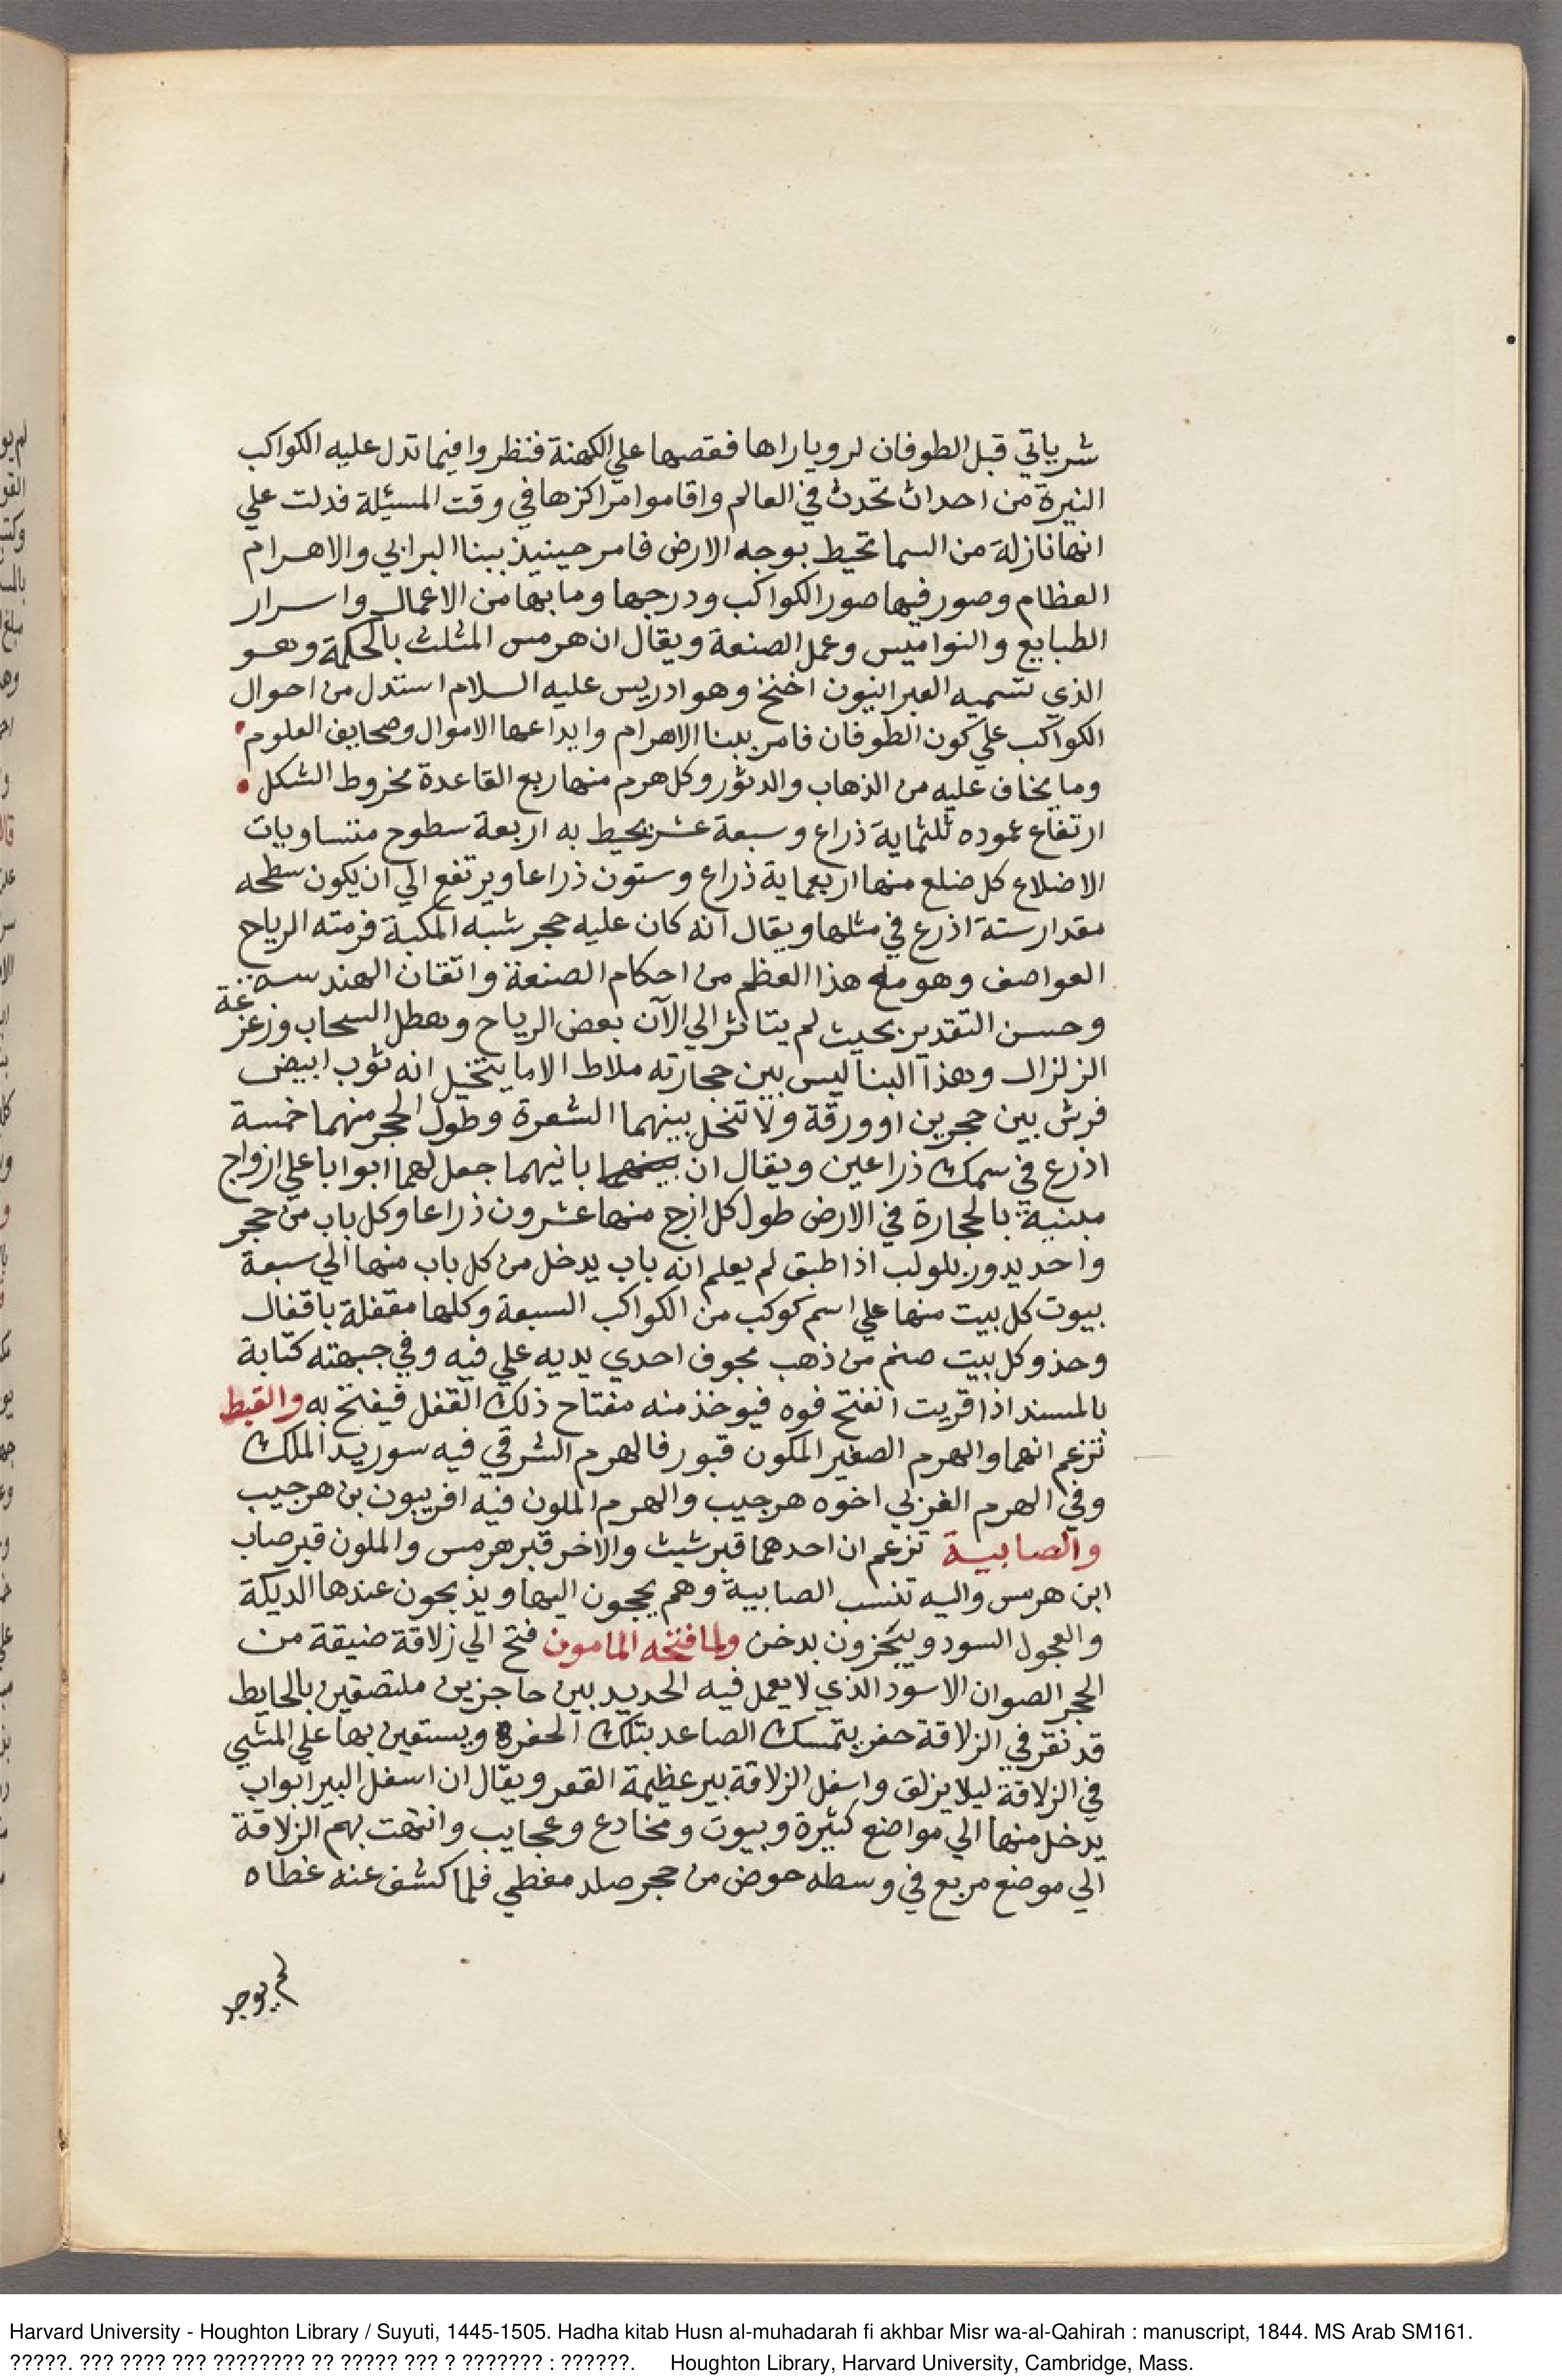 شرياتي قبل الطوفان لرويا راها فقصها علي الكهنة فنظروا فيما تدل عليه الكواكب
النيرة من احداث تحدث في العالم واقاموا مراكزها في وقت المسيلة فدلت علي
انها نازلة من السما تحيط بوجه الارض فامر حينيذ ببنا البرابي والاهرام
العظام وصور فيها صور الكواكب ودرجها وما بها من الاعمال واسرار
الطبايع والنواميس وعمل الصنعة ويقال ان هرمس المثلث بالحكمة وهو
الذي تسميه العبرانيون اخنخ وهو ادريس عليه السلام استدل من احوال
الكواكب علي كون الطوفان فامر ببنا الاهرام وايداعها الاموال وصحايف العلوم
وما يخاف عليه من الذهاب والدثور وكل هرم منها ربع القاعدة مخروط الشكل
ارتفاع عموده ثلثماية ذراع وسبعة عشر يحيط به اربعة سطوح متساويات
الاضلاع كل ضلع منها اربعماية ذراع وستون ذراعا ويرتفع الي ان يكون سطحه
مقدار ستة اذرع في مثلها ويقال انه كان عليه حجر شبه المكبة فرمته الرياح
العواصف وهو مع هذا العظم من احكام الصنعة واتقان الهندسه
وحسن التقدير بحيث لم يتاثر الي الآن بعض الرياح وهطل السحاب وزعزعة
الزلزال وهذا البنا ليس بين حجارته ملاط الا ما يتخيل انه ثوب ابيض
فرش بين حجرين او ورقة ولا تتخل بينهما الشعرة وطول الحجر منهما خمسة
اذرع في سمك ذراعين ويقال ان بينهما بانيهما جعل لهما ابوابا علي ازواج
مبنية بالحجارة في الارض طول كل ازج منها عشرون ذراعا وكل باب من حجر
واحد يدور بلولب اذا اطبق لم يعلم انه باب يدخل من كل باب منها الي سبعة
بيوت كل بيت منها علي اسم كوكب من الكواكب السبعة وكلها مقفلة باقفال
وحذو كل بيت صنم من ذهب مجوف احدي يديه علي فيه وفي جبهته كتابة
بالمسند اذا قريت انفتح فوه فيوخذ منه مفتاح ذلك القفل فيفتح به والقبط
تزعم انهما والهرم الصغير المكون قبور فالهرم الشرقي فيه سوريد الملك
وفي الهرم الغربي اخوه هرجيب والهرم الملون فيه افريبون بن هرجيب
والصابية تزعم ان احدهما قبر شيث والاخر قبر هرمس والملون قبر صاب
ابن هرمس واليه تنسب الصابية وهم يحجون اليها ويذبحون عندها الديكة
والعجول السود ويبخرون بدخن ولما فتحه المامون فتح الي زلاقة ضيقة من
الحجر الصوان الاسود الذي لا يعمل فيه الحديد بين حاجزين ملتصقين بالحايط
قد نقر في الزلاقة حفر يتمسك الصاعد بتلك الحفرة ويستعين بها علي المشي
في الزلاقة ليلا يزلق واسفل الزلاقة بير عظيمة القعر ويقال ان اسفل البير ابواب
يدخل منها الي مواضع كثيرة وبيوت ومخادع وعجايب وانتهت بهم الزلاقة
الي موضع مربع في وسطه حوض من حجر صلد مغطي فلما كشف عنه غطاه
لم يوجد
Harvard University - Houghton Library / Suyuti, 1445-1505. Hadha kitab Husn al-muhadarah fi akhbar Misr wa-al-Qahirah : manuscript, 1844. MS Arab SM161.
?????. ??? ???? ??? ???????? ?? ????? ??? ? ??????? : ??????. Houghton Library, Harvard University, Cambridge, Mass.